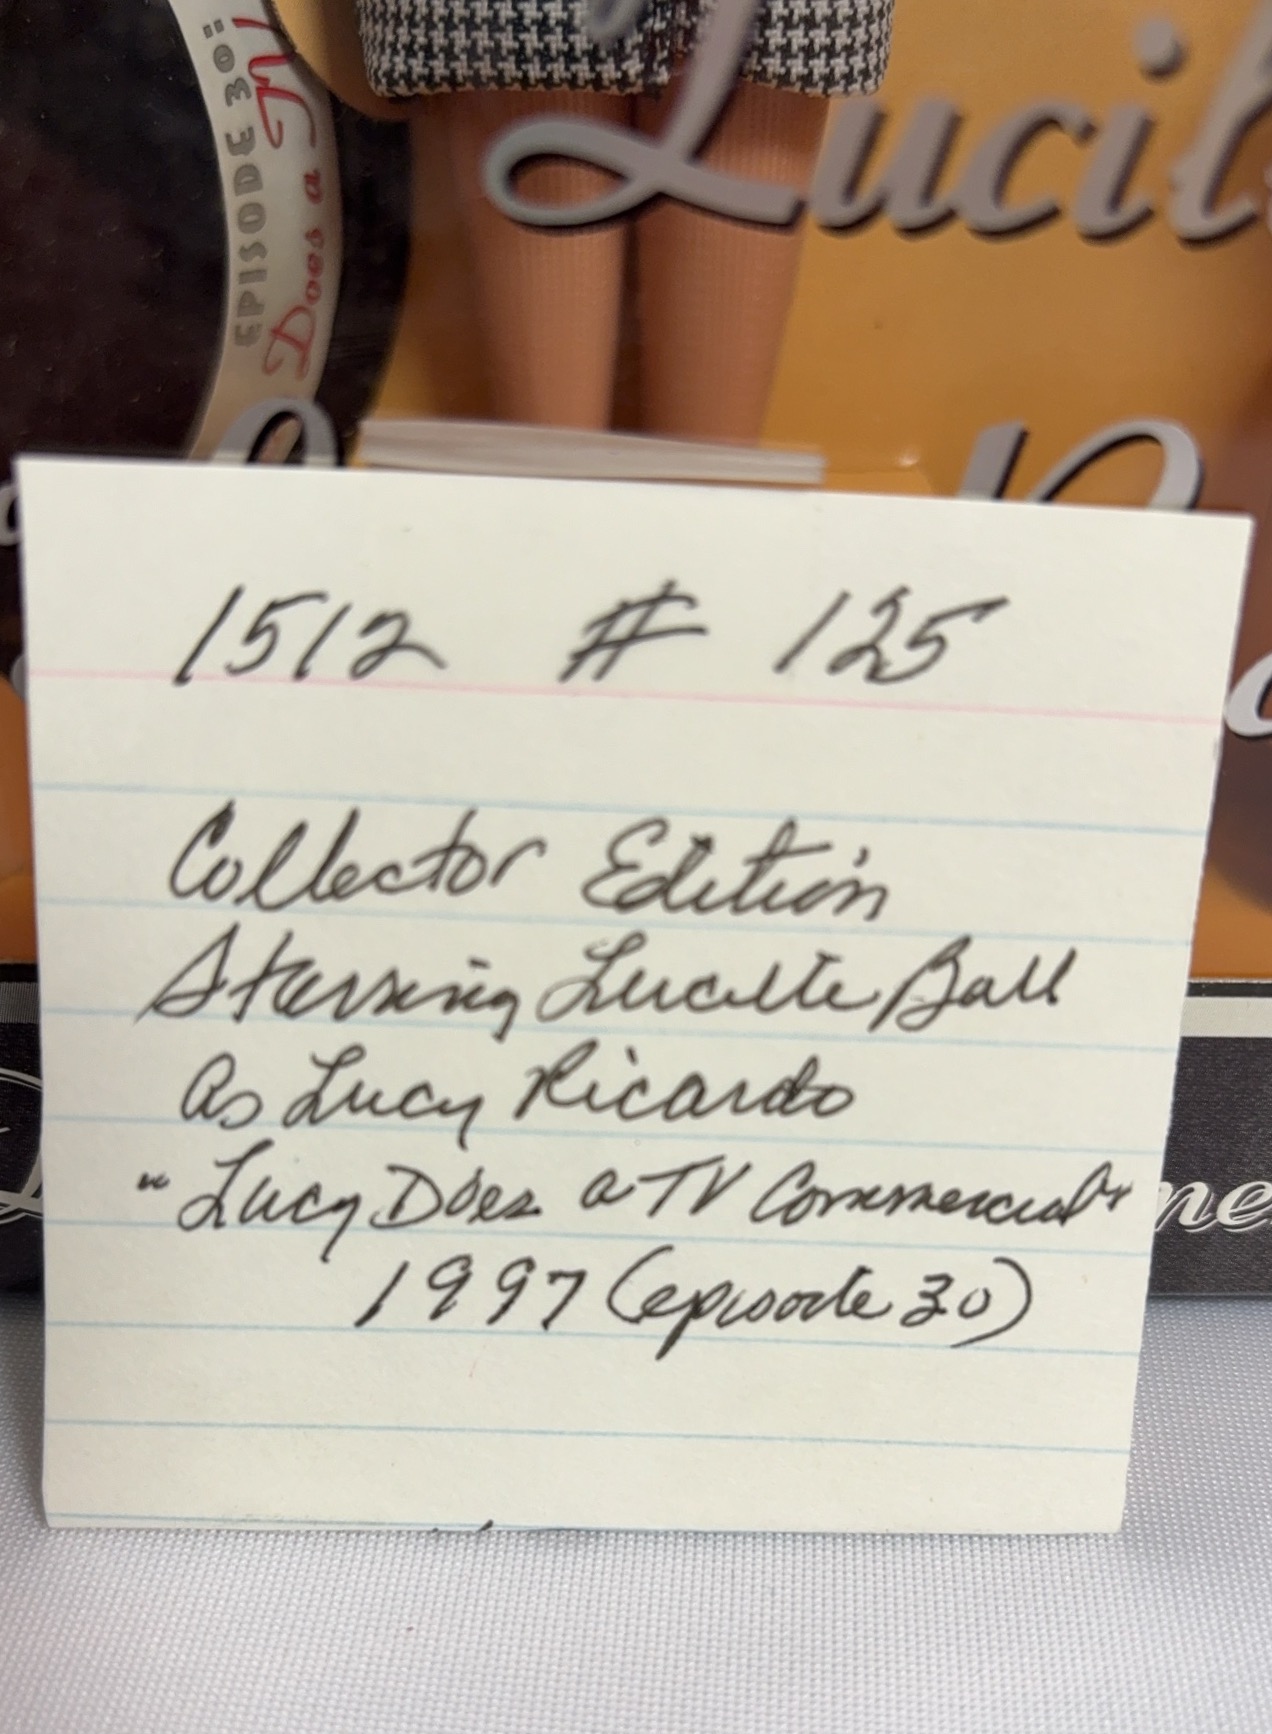 EPISODE 30:
Does a TV
Lucil
1512 # 125
Collector Edition
Starring Lucille Ball
as Lucy Ricardo
"Lucy Does a TV Commercial"
1997 (episode 30)
ne